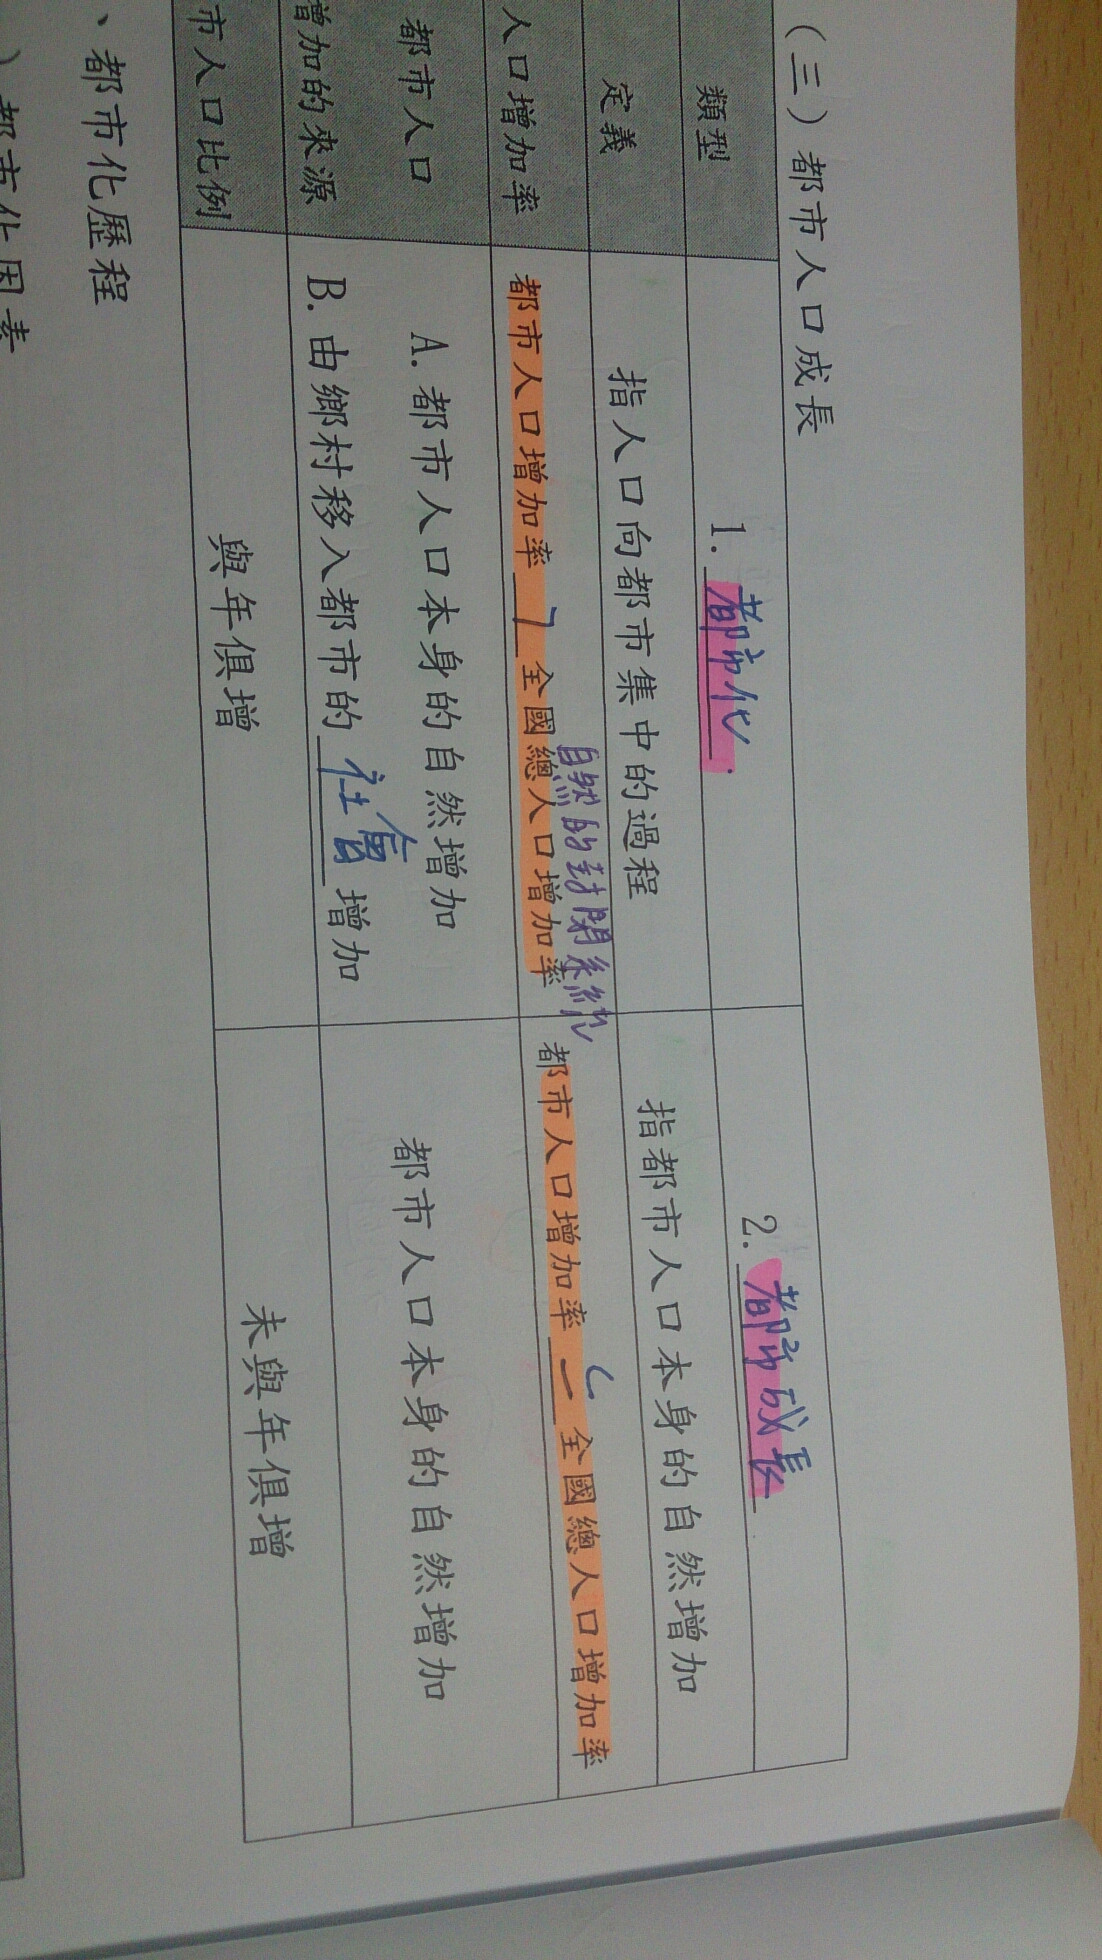 (三)都市人口成長
類型
1. 都市化
2. 都市成長
定義
指人口向都市集中的過程
指都市人口本身的自然增加
人口增加率
都市人口增加率 > 全國總人口增加率
自然的封閉系統
都市人口增加率 ≤ 全國總人口增加率
都市人口
增加的來源
A. 都市人口本身的自然增加
B. 由鄉村移入都市的 社會 增加
都市人口本身的自然增加
市人口比例
與年俱增
未與年俱增
、都市化歷程
)都市化因素